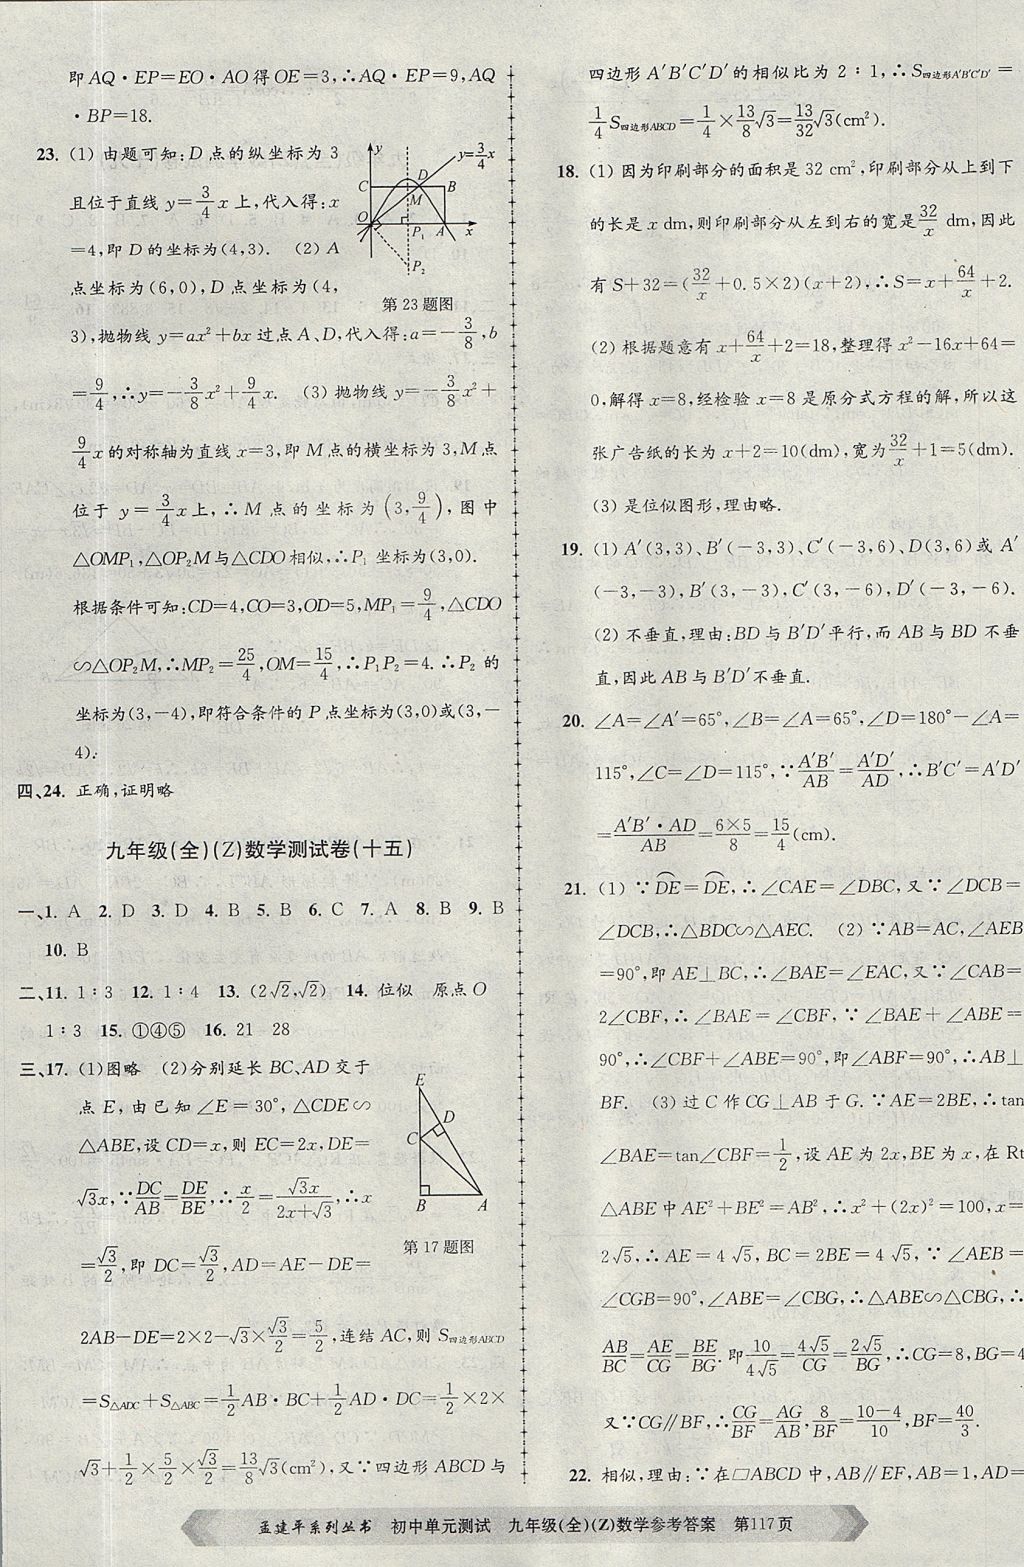 即AQ·EP=EO·AO得OE=3,∴AQ·EP=9,AQ
·BP=18.
23. (1) 由题可知:D点的纵坐标为3
且位于直线y=3/4x上,代入得:x
=4,即D的坐标为(4,3). (2) A
点坐标为(6,0),D点坐标为(4,
第23题图
3),抛物线y=ax²+bx过点A、D,代入得:a=-3/8,b
=9/4,∴y=-3/8x²+9/4x. (3) 抛物线y=-3/8x²+
9/4x的对称轴为直线x=3,即M点的横坐标为3,M点
位于y=3/4x上,∴M点的坐标为(3,9/4),图中
△OMP₁,△OP₂M与△CDO相似,∴P₁坐标为(3,0).
根据条件可知:CD=4,CO=3,OD=5,MP₁=9/4,△CDO
∽△OP₂M,∴MP₂=25/4,OM=15/4,∴P₁P₂=4.∴P₂的
坐标为(3,-4),即符合条件的P点坐标为(3,0)或(3,-
4).
四、24. 正确,证明略
九年级(全)(Z)数学测试卷(十五)
一、1. A 2. D 3. D 4. B 5. B 6. C 7. A 8. B 9. B
10. B
二、11. 1∶3 12. 1∶4 13. (2√2,√2) 14. 位似 原点O
1∶3 15. ①④⑤ 16. 21 28
三、17. (1)图略 (2)分别延长BC、AD交于
点E,由已知∠E=30°,△CDE∽
△ABE,设CD=x,则EC=2x,DE=
√3x,∵DC/AB=DE/BE,∴x/2=√3x/(2x+√3),∴x
第17题图
=√3/2,即DC=√3/2,AD=AE-DE=
2AB-DE=2×2-√3×√3/2=5/2,连结AC,则S四边形ABCD
=S△ADC+S△ABC=1/2AB·BC+1/2AD·DC=1/2×2×
√3+1/2×5/2×√3/2=13/8√3(cm²),又∵四边形ABCD与
四边形A′B′C′D′的相似比为2∶1,∴S四边形A′B′C′D′=
1/4S四边形ABCD=1/4×13/8√3=13/32√3(cm²).
18. (1) 因为印刷部分的面积是32 cm²,印刷部分从上到下
的长是x dm,则印刷部分从左到右的宽是32/x dm,因此
有S+32=(32/x+0.5×2)(x+2),∴S=x+64/x+2.
(2) 根据题意有x+64/x+2=18,整理得x²-16x+64=
0,解得x=8,经检验x=8是原分式方程的解,所以这
张广告纸的长为x+2=10(dm),宽为32/x+1=5(dm).
(3) 是位似图形,理由略.
19. (1) A′(3,3)、B′(-3,3)、C′(-3,6)、D(3,6)或A′
(-3,-3),B′(3,-3),C′(3,-6),D′(-3,-6).
(2) 不垂直,理由:BD与B′D′平行,而AB与BD不垂
直,因此AB与B′D′不垂直.
20. ∠A=∠A′=65°,∠B=∠A=65°,∠D=180°-∠A=
115°,∠C=∠D=115°,∵A′B′/AB=A′D′/AD,∴B′C′=A′D′
=A′B′·AD/AB=6×5/8=15/4(cm).
21. (1) ∵D͡E=D͡E,∴∠CAE=∠DBC,又∵∠DCB=
∠DCB,∴△BDC∽△AEC. (2) ∵AB=AC,∠AEB
=90°,即AE⊥BC,∴∠BAE=∠EAC,又∵∠CAB=
2∠CBF,∴∠BAE=∠CBF,∵∠BAE+∠ABE=
90°,∴∠CBF+∠ABE=90°,即∠ABF=90°,∴AB⊥
BF. (3) 过C作CG⊥AB于G.∵AE=2BE,∴tan
∠BAE=tan∠CBF=1/2,设AE为2x,BE为x,在Rt
△ABE中AE²+BE²=AB²,∴x²+(2x)²=100,x=
2√5,∴AE=4√5,BC=2BE=4√5,∵∠AEB=
∠CGB=90°,∠ABE=∠CBG,∴△ABE∽△CBG,∴
AB/BC=AE/CG=BE/BG.即10/4√5=4√5/CG=2√5/BG,∴CG=8,BG=4
又∵CG∥BF,∴CG/BF=AG/AB,8/BF=(10-4)/10,BF=40/3.
22. 相似,理由:∵在□ABCD中,AB∥EF,AB=1,AD=
孟建平系列丛书 初中单元测试 九年级(全)(Z)数学参考答案 第117页